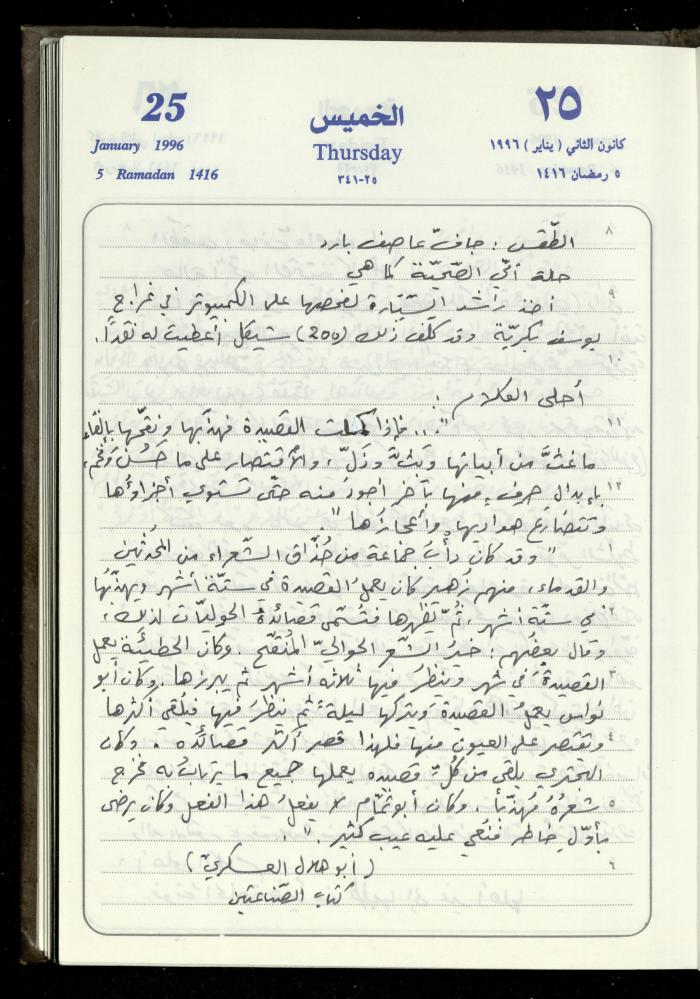 25
January 1996
5 Ramadan 1416
الخميس
Thursday
٣٤١-٢٥
٢٥
كانون الثاني ( يناير ) ١٩٩٦
٥ رمضان ١٤١٦
٨ الطّقس : جافّ عاصف بارد
حالة أمّي الصّحّيّة كما هي
٩ أخذ راشد السّيّارة لفحصها على الكمبيوتر في غراج
يوسف بكريّة وقد كلّف ذلك (200) شيكل أعطيت له نقدًا.
١٠
أحلى الكلام :
١١ "... فإذا كملت القصيدة فهذّبها ونقّحها بإلقاء
ما غثّ من أبياتها ورثّ ورذل ، والاقتصار على ما حَسُنَ وفخم،
١٢ بإبدال حرف منها بآخر أجود منه حتّى تستوي أجزاؤها
وتتضارع هواديها وأعجازها ".
١ " وقد كان دأب جماعة من حُذّاق الشّعراء من المُحدَثين
والقدماء، منهم زُهير كان يعملُ القصيدة في ستّة أشهر ويهذّبُها
٢ في ستّة أشهر ، ثُمّ يُظهرها فتُسمّى قصائدُهُ الحوليّات لذلك ،
وقال بعضُهم : خيرُ الشّعر الحوليّ المُنقّح . وكان الحطيئة يعمل
٣ القصيدةَ في شهر وينظرُ فيها ثلاثة أشهر ثمّ يبرزها . وكان أبو
نواس يعملُ القصيدة ويتركها ليلةً ثمّ ينظرُ فيها فيُلقي أكثرها
٤ ويقتصر على العيون منها فلهذا قصر أكثر قصائدُه . وكان
البحتري يلقي من كُلّ قصيدة يعملها جميع ما يرتابُ به فخرج
٥ شعرُهُ مُهذّبًا . وكان أبو تمّام لا يفعلُ هذا الفعل وكان يرضى
بأوّلِ خاطر فنُعي عليه عيب كثير . " .
٦ ( أبو هلال العسكريّ )
كتاب الصّناعتين